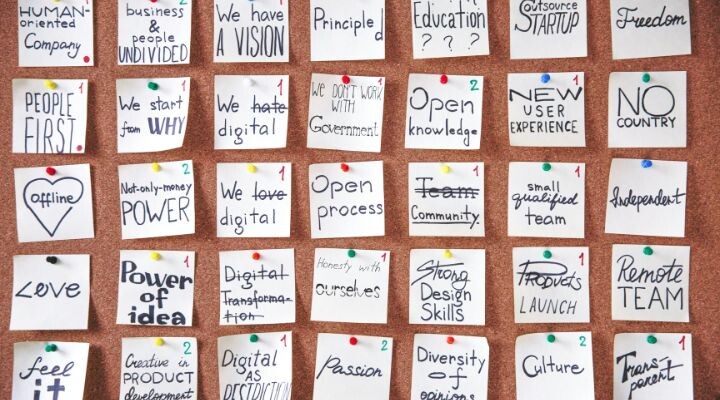 HUMAN-
oriented
Company.
business
&
people
UNDIVIDED
We have
A VISION
Principled
Education
? ? ?
Outsource
STARTUP
Freedom
PEOPLE
FIRST.
1
We start
from WHY
1
We hate
digital
1
We DON'T WORK
WITH
Government
2
Open
knowledge
1
NEW
USER
EXPERIENCE
1
NO
COUNTRY
offline
2
Not-only-money
POWER
1
We love
digital
Open
process
1
Team
Community
1
small
qualified
team
Independent
Love
1
Power
of
idea
Digital
Transforma-
tion
1
Honesty with
ourselves
Strong
Design
Skills
1
Products
LAUNCH
Remote
TEAM
1
feel
it
2
Creative in
PRODUCT
development
1
Digital
AS
2
Passion
Diversity
of
opinions
2
Culture
1
Trans-
parent